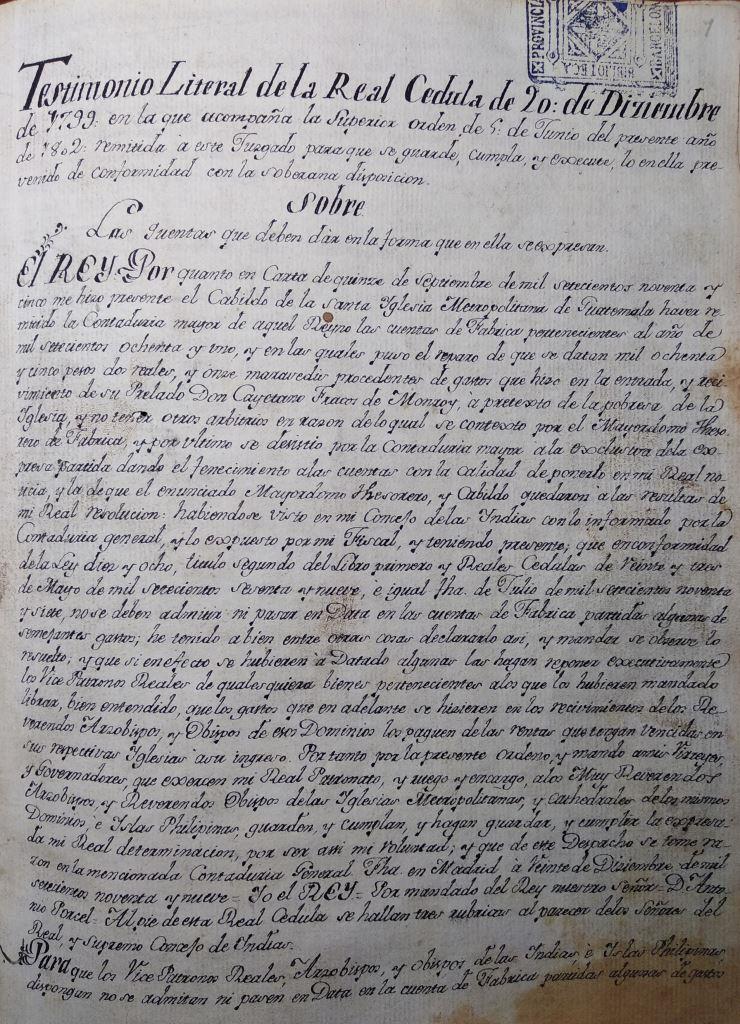 PROVINCIA
BIBLIOTECA
BARCELON
1
Testimonio Literal de la Real Cedula de 20: de Diziembre
de 1799: en la que acompaña la Superior orden de 6: de Junio del presente año
de 1802: remitida à este Juzgado para que se guarde, cumpla, y execute, lo en ella pre-
venido de conformidad con la soberana disposicion.
Sobre
Las Quentas que deben dàr en la forma que en ella se expresan.
El REY. Por quanto en Carta de quinze de Septiembre de mil setecientos noventa y
cinco me hizo presente el Cabildo de la Santa Yglesia Metropolitana de Guatemala haver re-
mitido la Contaduria mayor de aquel Reyno las cuentas de Fabrica pertenecientes al año de
mil setecientos ochenta y uno, y en las quales puso el reparo de que se datan mil ochenta
y cinco pesos dos reales, y onze maravedis procedentes de gastos que hizo en la entrada, y reci-
vimiento de su Prelado Don Cayetano Fracos de Monroy, à pretexto de la pobresa de la
Yglesia, y no tener otros arbitrios en razon de lo qual se contexto por el Mayordomo Theso-
rero de Fabrica, y por ultimo se desistio por la Contaduria mayor a la exclusiva dela ex-
presa partida dando el fenecimiento alas cuentas con la calidad de ponerlo en mi Real no-
ticia, y la de que el enunciado Mayordomo Thesorero, y Cabildo quedaron a las resultas de
mi Real resolucion: habiendose visto en mi Concejo delas Yndias con lo informado por la
Contaduria general, y lo expuesto por mi Fiscal, y teniendo presente; que en conformidad
dela Ley diez y ocho, titulo segundo del Libro primero y Reales Cedulas de Veinte y tres
de Mayo de mil setecientos sesenta y nueve, e igual fha. de Julio de mil setecientos noventa
y siete, no se deben admitir ni pasar en Data en las cuentas de Fabrica partidas algunas de
semejantes gastos; he tenido a bien entre otras cosas declararlo asi, y mandar se observe lo
resuelto; y que si en efecto se hubieren à Datado algunas las hagan reponer executivamente
los Vice Patronos Reales de qualesquiera bienes pertenecientes alos que los hubieren mandado
librar, bien entendido, que los gastos que en adelante se hizieren en los recivimientos delos Re-
verendos Arzobispos, y Obispos de esos Dominios los paguen de las rentas que tengan vencidas en
sus respectivas Yglesias a su ingreso. Por tanto por la presente Ordeno, y mando amis Virreyes,
y Governadores, que exercen mi Real Patronato, y ruego y encargo, alos Muy Reverendos
Arzobispos, y Reverendos Obispos delas Yglesias Metropolitanas, y Cathedrales delos mismos
Dominios, è Yslas Philipinas, guarden, y cumplan, y hagan guardar, y cumplir la expresa-
da mi Real determinacion, por ser asi mi Voluntad; y que de este Despacho se tome ra-
zon en la mencionada Contaduria General. Fha. en Madrid à Veinte de Diziembre de mil
setecientos noventa y nueve = Yo el REY = Por mandado del Rey nuestro Señor = D. Anto-
nio Porcel = Al pie de esta Real Cedula se hallan tres rubricas al parecer delos Señores del
Real, y Supremo Concejo de Yndias.
Para que los Vice Patronos Reales, Arzobispos, y Obispos de las Yndias è Yslas Philipinas
dispongan no se admitan ni pasen en Data en la cuenta de Fabrica partidas algunas de gastos